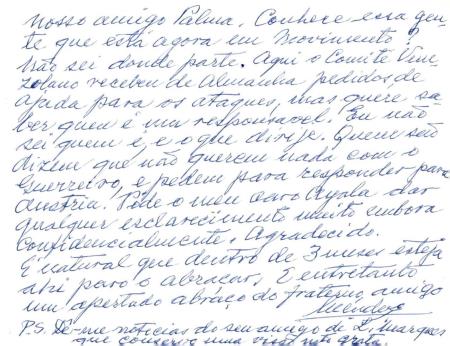 nosso amigo Palma. Conhece essa gen-
te que está agora em movimento?
Não sei donde parte. Aqui o Comité Vene-
zolano recebeu de Almanha pedidos de
ajuda para os ataques, mas quere sa-
ber quen é um responsavel. Eu não
sei quem é, e o que dirije. Quem são
dizem que não querem nada com o
Guerreiro, e pedem para responder para
Austria. Pode o meu caro Ayala dar
qualquer esclarecimento muito embora
confidencialmente. Agradecido.
É natural que dentro de 3 meses esteja
ahi para o abraçar. E entretanto
um apertado abraço do fraterno amigo
Mendes
P.S. Dê-me noticias do seu amigo de L. Marques
que conserv uma